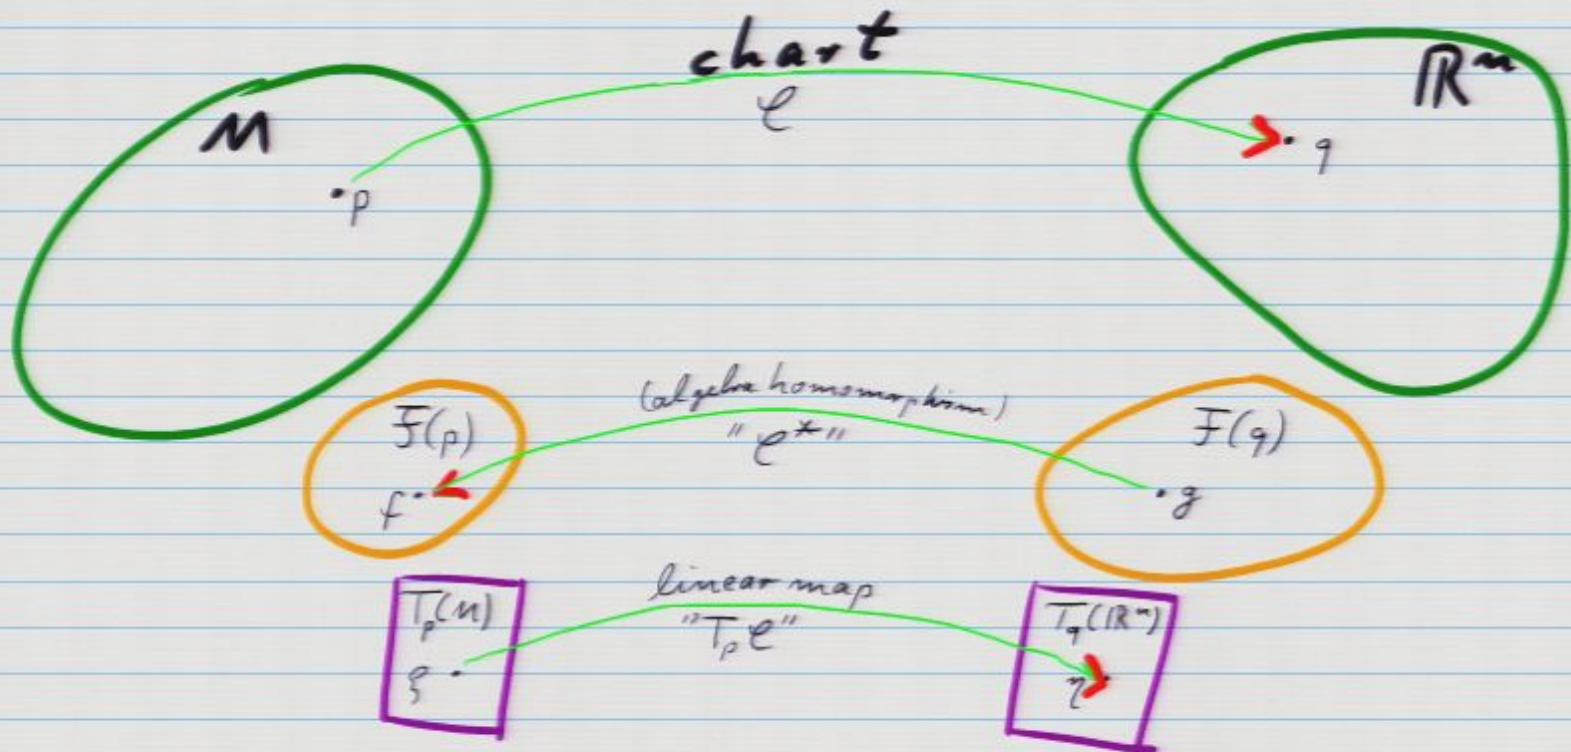 chart
φ
M
ℝⁿ
p
q
(algebra homomorphism)
"φ*"
F(p)
F(q)
f
g
linear map
"Tₚφ"
Tₚ(M)
T_q(ℝⁿ)
ξ
η